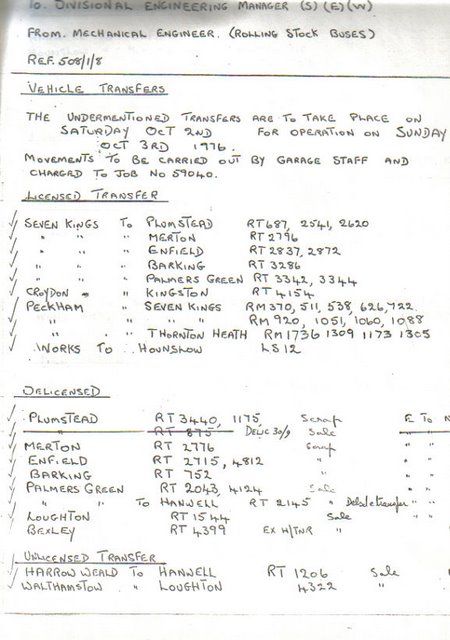 To. DIVISIONAL ENGINEERING MANAGER (S) (E) (W)
FROM. MECHANICAL ENGINEER. (ROLLING STOCK BUSES)
REF. 508/1/8
VEHICLE TRANSFERS
THE UNDERMENTIONED TRANSFERS ARE TO TAKE PLACE ON
SATURDAY OCT 2ND FOR OPERATION ON SUNDAY
OCT 3RD 1976.
MOVEMENTS TO BE CARRIED OUT BY GARAGE STAFF AND
CHARGED TO JOB NO 59040.
LICENSED TRANSFER
SEVEN KINGS TO PLUMSTEAD RT 687, 2541, 2620
" " " MERTON RT 2796
" " " ENFIELD RT 2837, 2872
" " " BARKING RT 3286
" " " PALMERS GREEN RT 3342, 3344
CROYDON " KINGSTON RT 4154
PECKHAM " SEVEN KINGS RM 370, 511, 538, 626, 722
" " " " RM 920, 1051, 1060, 1088
" " THORNTON HEATH RM 1736 1309 1173 1305
WORKS TO HOUNSLOW LS 12
DELICENSED
PLUMSTEAD RT 3440, 1175 Scrap
" RT 895 DELIC 30/9 Sale
MERTON RT 2776 Scrap " "
ENFIELD RT 2715, 4812 " " "
BARKING RT 752 " " "
PALMERS GREEN RT 2043, 4124 Sale " "
" " TO HANWELL RT 2145 " " "
LOUGHTON RT 1544 Sale " "
BEXLEY RT 4399 EX H/TNR " " "
UNLICENSED TRANSFER
HARROW WEALD TO HANWELL RT 1206 Sale "
WALTHAMSTOW " LOUGHTON 4322 " "